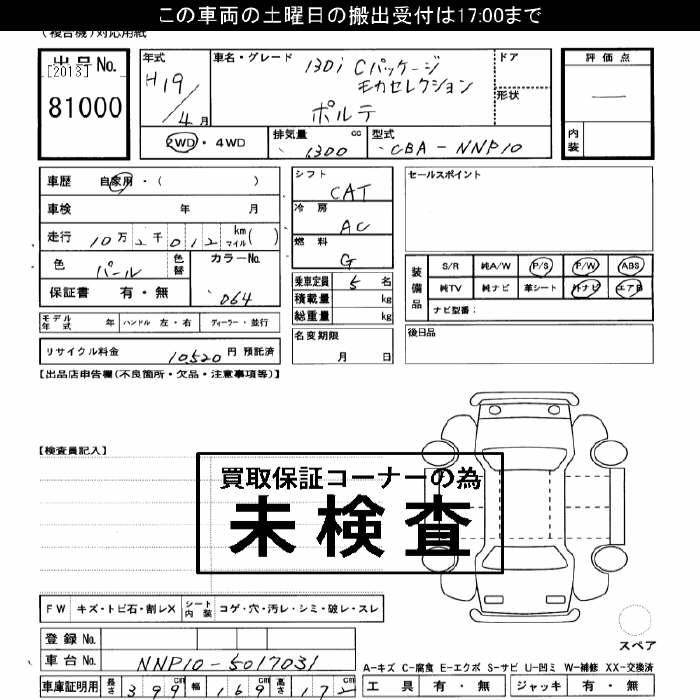 この車両の土曜日の搬出受付は17:00まで
(複合機)対応用紙
出品No.
[2013]
81000
年式
H19/4月
車名・グレード
130i Cパッケージ
モカセレクション
ポルテ
ドア
形状
評価点
内装
2WD・4WD
排気量 cc
1300
型式
CBA-NNP10
車歴 自家用・( )
車検 年 月
走行 10万2千012 km マイル( )
色 パール 色替 カラーNo.
064
保証書 有・無
シフト
CAT
冷房
AC
燃料
G
乗車定員 5名
積載量 kg
総重量 kg
名変期限
月 日
セールスポイント
装備品
S/R 純A/W P/S P/W ABS
純TV 純ナビ 革シート 外ナビ エアB
ナビ型番:
後日品
モデル年式 年 ハンドル 左・右 ディーラー・並行
リサイクル料金 10,520 円 預託済
【出品店申告欄(不良箇所・欠品・注意事項等)】
【検査員記入】
買取保証コーナーの為
未検査
FW キズ・トビ石・割レX シート内装 コゲ・穴・汚レ・シミ・破レ・スレ
登録No.
車台No. NNP10-5017031
車庫証明用 長さ 399cm 幅 169cm 高さ 172
スペア
A-キズ C-腐食 E-エクボ S-サビ U-凹ミ W-補修 XX-交換済
工具 有・無 ジャッキ 有・無